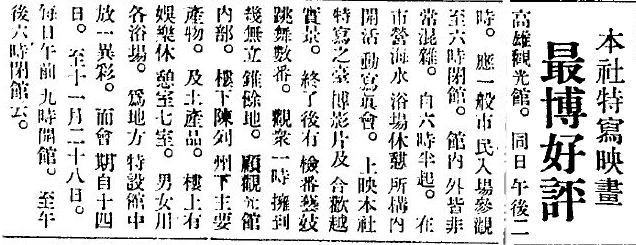 本社特寫映畫
最博好評
高雄觀光館。同日午後二
時。應一般市民入場參觀
至六時閉館。館內外皆非
常混雜。自六時半起。在
市營海水浴場休憩所構內
開活動寫眞會。上映本社
特寫之臺博影片及合歡越
實景。終了後有檢番藝妓
跳舞數番。觀衆一時擁到
幾無立錐餘地。顧觀光館
內部。樓下陳列州下主要
產物。及土產品。樓上有
娛樂休憩室七室。男女川
各浴場。爲地方特設館中
放一異彩。而會期自十四
日。至十一月二十八日。
每日午前九時開館。至午
後六時閉館云。